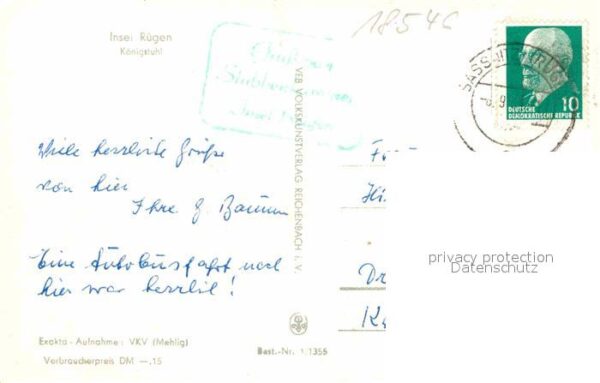 Insel Rügen
Königstuhl
18546
Gruß vom
Stubbenkammer
Insel Rügen
SASSNITZ (RÜGEN)
10
DEUTSCHE
DEMOKRATISCHE REPUBLIK
Viele herzliche Grüße
von hier
Ihre G. Baumm
Eine Autobusfahrt nach
hier war herrlich!
VEB VOLKSKUNSTVERLAG REICHENBACH i. V.
Fr
Hi
Dr
Ka
privacy protection
Datenschutz
Exakta - Aufnahme: VKV (Mehlig)
Verbraucherpreis DM —,15
Best.-Nr. 1/1355